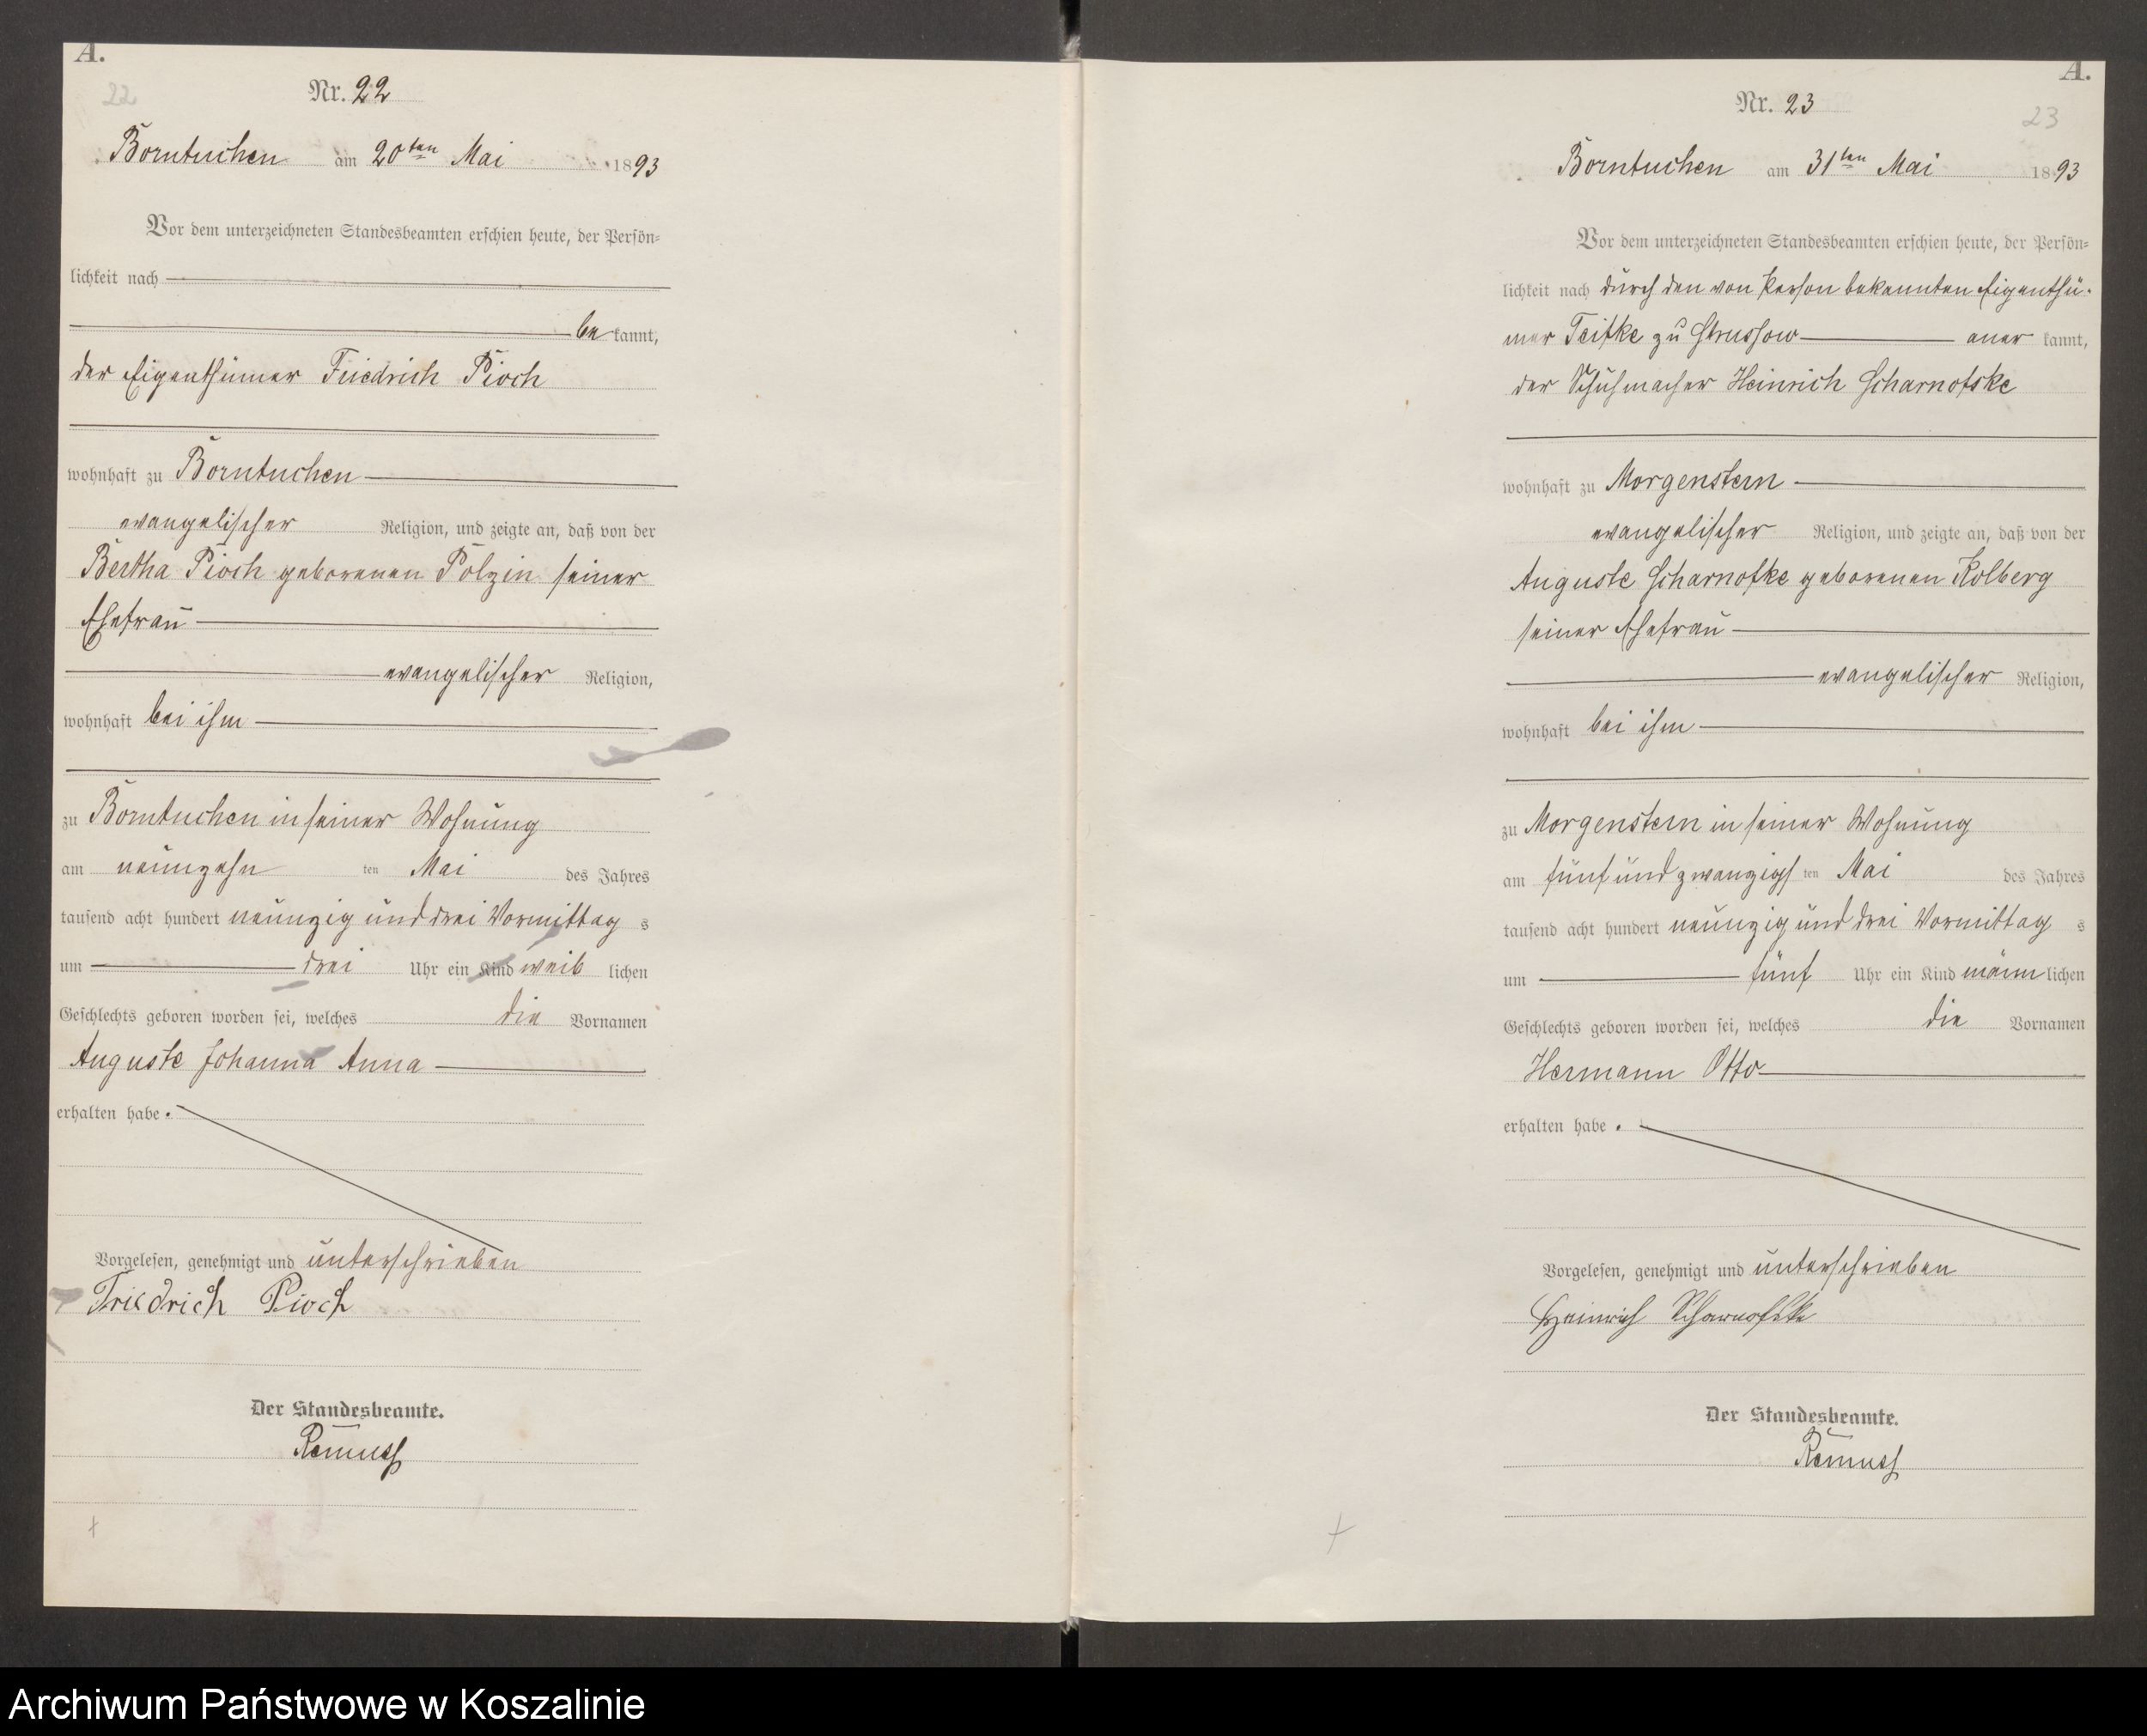 A.
22
Nr. 22
Borntuchen am 20ten Mai 1893
Vor dem unterzeichneten Standesbeamten erschien heute, der Persön-
lichkeit nach
be kannt,
der Eigenthümer Friedrich Pioch
wohnhaft zu Borntuchen
evangelischer Religion, und zeigte an, daß von der
Bertha Pioch geborenen Polzin seiner
Ehefrau
evangelischer Religion,
wohnhaft bei ihm
zu Borntuchen in seiner Wohnung
am neunzehn ten Mai des Jahres
tausend acht hundert neunzig und drei Vormittag s
um drei Uhr ein Kind weib lichen
Geschlechts geboren worden sei, welches die Vornamen
Auguste Johanna Anna
erhalten habe.
Vorgelesen, genehmigt und unterschrieben
Friedrich Pioch
Der Standesbeamte.
Remuss
A.
Nr. 23
23
Borntuchen am 31ten Mai 1893
Vor dem unterzeichneten Standesbeamten erschien heute, der Persön-
lichkeit nach durch den von Person bekannten Eigenthü-
mer Teifke zu Strussow aner kannt,
der Schuhmacher Heinrich Scharnofske
wohnhaft zu Morgenstern
evangelischer Religion, und zeigte an, daß von der
Auguste Scharnofke geborenen Kolberg
seiner Ehefrau
evangelischer Religion,
wohnhaft bei ihm
zu Morgenstern in seiner Wohnung
am fünf und zwanzigs ten Mai des Jahres
tausend acht hundert neunzig und drei Vormittag s
um fünf Uhr ein Kind männ lichen
Geschlechts geboren worden sei, welches die Vornamen
Hermann Otto
erhalten habe.
Vorgelesen, genehmigt und unterschrieben
Heinrich Scharnofske
Der Standesbeamte.
Remuss
Archiwum Państwowe w Koszalinie